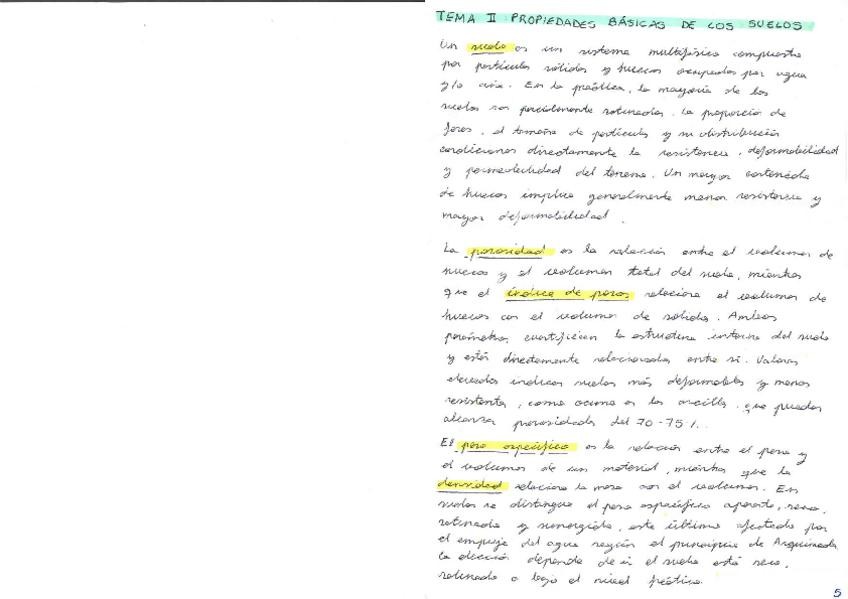 TEMA II PROPIEDADES BÁSICAS DE LOS SUELOS
Un suelo es un sistema multifásico compuesto
por partículas sólidas y huecos ocupados por agua
y/o aire. En la práctica, la mayoría de los
suelos son parcialmente saturados. La proporción de
poros, el tamaño de partículas y su distribución
condicionan directamente la resistencia, deformabilidad
y permeabilidad del terreno. Un mayor contenido
de huecos implica generalmente menor resistencia y
mayor deformabilidad.
La porosidad es la relación entre el volumen de
huecos y el volumen total del suelo, mientras
que el índice de poros relaciona el volumen de
huecos con el volumen de sólidos. Ambos
parámetros cuantifican la estructura interna del suelo
y están directamente relacionados entre sí. Valores
elevados indican suelos más deformables y menos
resistentes, como ocurre en las arcillas, que pueden
alcanzar porosidades del 70-75%.
El peso específico es la relación entre el peso y
el volumen de un material, mientras que la
densidad relaciona la masa con el volumen. En
suelos se distingue el peso específico aparente, seco,
saturado y sumergido, este último afectado por
el empuje del agua según el principio de Arquímedes
la elección depende de si el suelo está seco,
saturado o bajo el nivel freático.
5